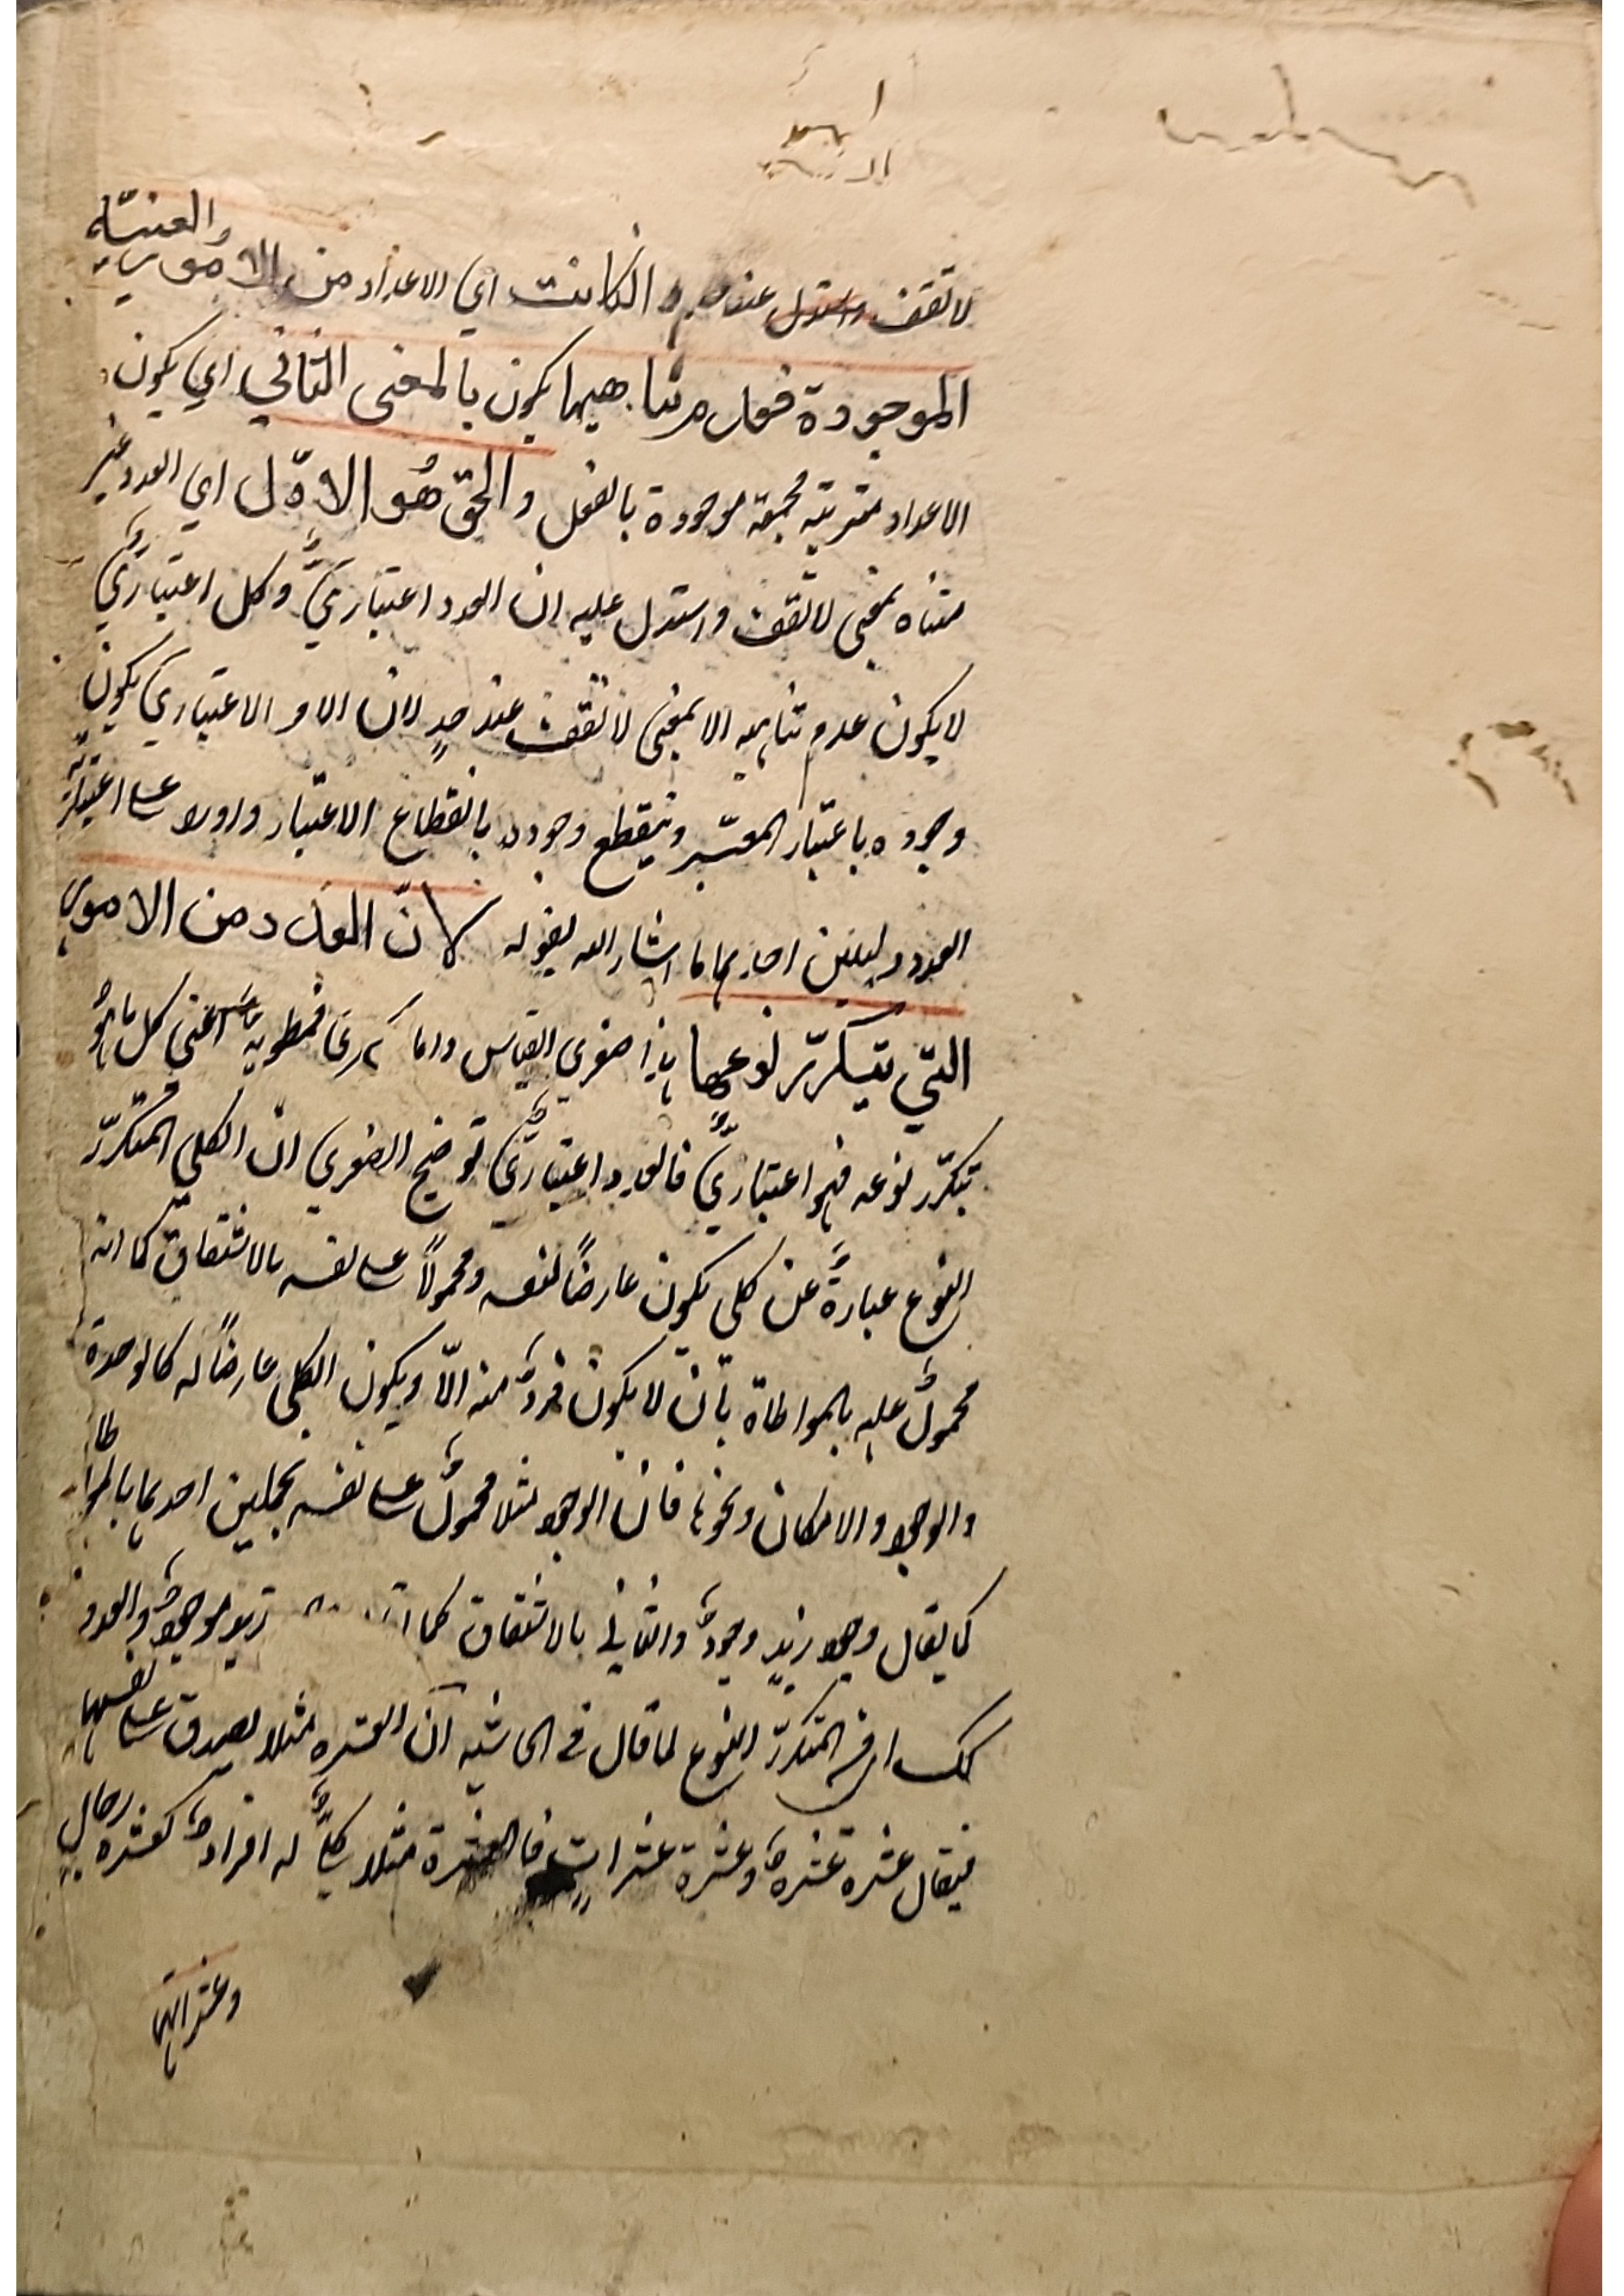 لا تقف عند حد وان كانت اي الاعداد من الامور العينية
الموجودة فعدم تناهيها يكون بالمعنى الثاني اي يكون
الاعداد مترتبة مجتمعة موجودة بالفعل والحق هو الاوّل اي العدد غير
متناه بمعنى لا تقف واستدل عليه ان العدد اعتباريٌّ وكل اعتباريٍّ
لا يكون عدم تناهيه الا بمعنى لا تقف عند حدٍ لان الامر الاعتباري يكون
وجوده باعتبار المعتبر وينقطع وجوده بانقطاع الاعتبار واورد على اعتباريّة
العدد دليلين احدهما ما اشار اليه بقوله لانّ العدد من الامور
التي يتكرّر نوعها هذا صغرى القياس واما كبرىها فمطوية اعني كل ما هو
يتكرّر نوعه فهو اعتباريٌّ فالعدد اعتباريٌّ توضيح الصغرى ان الكلي المتكرّر
النوع عبارةٌ عن كلي يكون عارضاً لنفسه ومحمولاً على نفسه بالاشتقاق كما انه
محمولٌ عليه بالمواطاة بان لا يكون فردٌ منه الّا ويكون الكلي عارضاً له كالوحدة
والوجود والامكان ونحوها فان الوجود مثلا محمولٌ على نفسه بحملين احدهما بالمواطاة
كما يقال وجود زيدٍ وجودٌ والثاني بالاشتقاق كما زيد موجودٌ والعدد
كك المتكرّر النوع لما قال في الحاشية ان العشرة مثلا يصدق على نفسها
فيقال عشرة عشرةٌ وعشرة عشراتٍ فالعشرة مثلا كليٌّ له افرادٌ كعشرة رجالٍ
وعشر